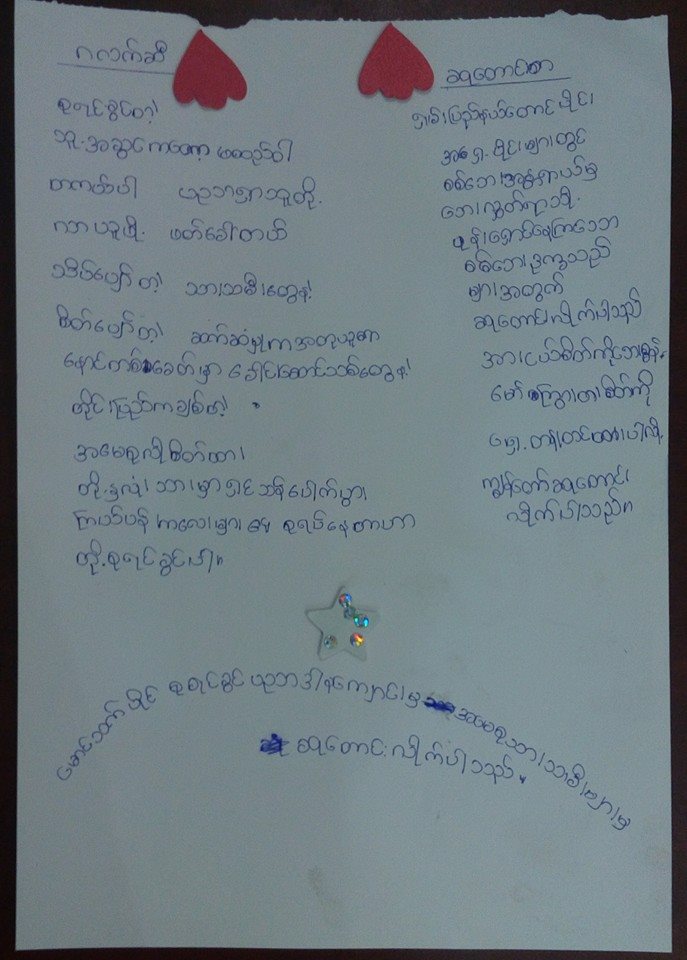 ဂလက်ဆီ
စုရင်ခွင်တဲ့
သူ့အဆွေကတော့ မဟုတ်ပါ
တကယ်ပါ ယူဘရှာသူတို့
ဘဝ ပျော်တဲ့ သားသမီးတွေနဲ့
စိတ်ပျော်တဲ့ ဆက်ဆံမှုက အတုယူစရာ
နောင်တစ်ခေတ်မှာ ခေါင်းဆောင်သစ်တွေနဲ့
တိုင်းပြည်ကချစ်တဲ့
အမေစုလိုစိတ်ထား
တို့နှလုံးသားမှာရှင်သန်ပေါက်ပွား
ကြယ်ပန်းကလေးများ စုရပ်နေတာဟာ
တို့စုရင်ခွင်ပါ။
ဆုတောင်းစာ
ရှမ်းပြည်နယ်တောင်ပိုင်း
အရှေ့ပိုင်းများတွင်
စစ်ဘေးအန္တရာယ်မှ
ဘေးလွတ်ရာသို့
ပုန်းရှောင်နေကြသော
စစ်ဘေးဒုက္ခသည်
များအတွက်
ဆုတောင်းလိုက်ပါသည်
အားငယ်စိတ်ကိုဘေးဖယ်
မော်ကြွားတာစိတ်ကို
ရှေ့တန်းတင်ထားပါလို့
ကျွန်တော်ဆုတောင်း
လိုက်ပါသည်။
မောင်သက်ပိုင် စုရင်ခွင် ယူဘဒါနကျောင်းမှ အမေစုသားသမီးများမှ
ဆုတောင်းလိုက်ပါသည်။